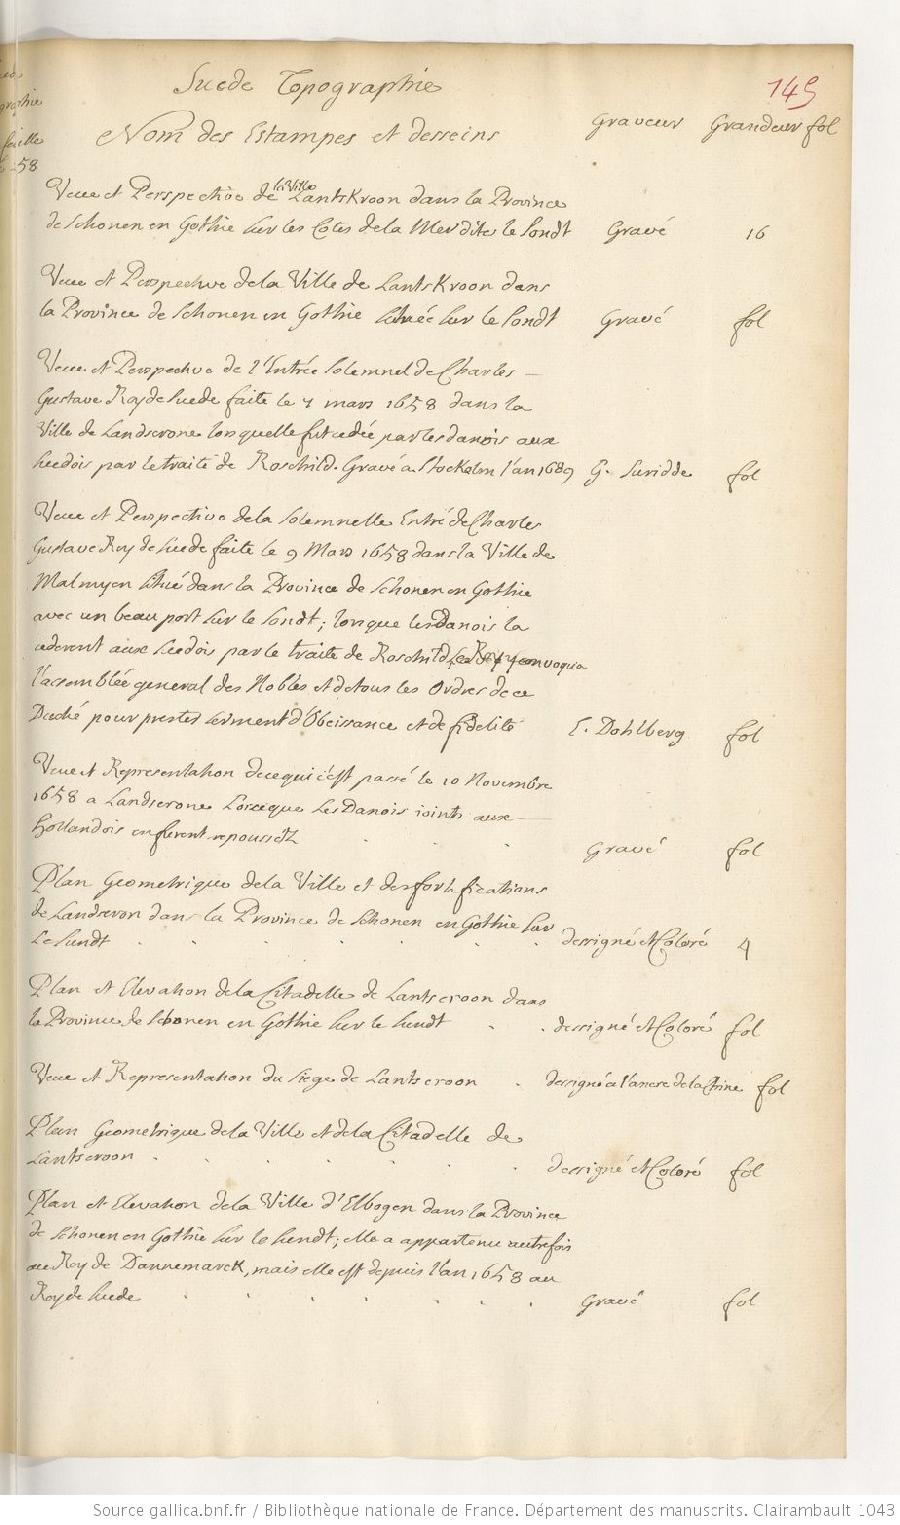 Suede Topographie
145
Nom des Estampes et desseins Graveur Grandeur fol
Veue et Perspective de la Ville Lantskroon dans la Province
de Schonen en Gothie sur les Cotes de la Mer dite le Sondt Gravé 16
Veue et Perspective de la Ville de Lantskroon dans
la Province de Schonen en Gothie située sur le Sondt Gravé fol
Veue et Perspective de l'Entrée solemnel de Charles
Gustave Roy de Suede faite le 7 mars 1658 dans la
Ville de Landscrone lorsquelle fut cedée par les danois aux
suedois par le traité de Roschild. Gravé a Stockolm l'an 1689 G. Suridde fol
Veue et Perspective de la solemnelle Entré de Charles
Gustave Roy de Suede faite le 9 Mars 1658 dans la Ville de
Malmyen situé dans la Province de Schonen en Gothie
avec un beau port sur le Sondt; lorsque les Danois la
cederent aux suedois par le traite de Roschild. Le Roy y convoqua
l'assemblée general des Nobles et de tous les Ordres de ce
Duché pour prester serment d'Obeissance et de fidelité E. Dohlberg fol
Veue et Representation de ce qui c'est passé le 10 Novembre
1658 a Landscrone Lorsque Les Danois joints aux
Hollandois en furent repoussez Gravé fol
Plan Geometrique de la Ville et des fortifications
de Landscron dans la Province de Schonen en Gothie sur
Le Sundt dessigné et Coloré 4
Plan et Elevation de la Citadelle de Lantscroon dans
la Province de Schonen en Gothie sur le Sundt dessigné et Coloré fol
Veue et Representation du siege de Lantscroon dessigné a l'ancre de la Chine fol
Plan Geometrique de la Ville et de la Citadelle de
Lantscroon dessigné et Coloré fol
Plan et Elevation de la Ville d'Elbogen dans la Province
de Schonen en Gothie sur le Sundt; elle a appartenu autrefois
au Roy de Dannemarck, mais elle est depuis l'an 1658 au
Roy de Suede Gravé fol
Source gallica.bnf.fr / Bibliothèque nationale de France. Département des manuscrits. Clairambault 1043